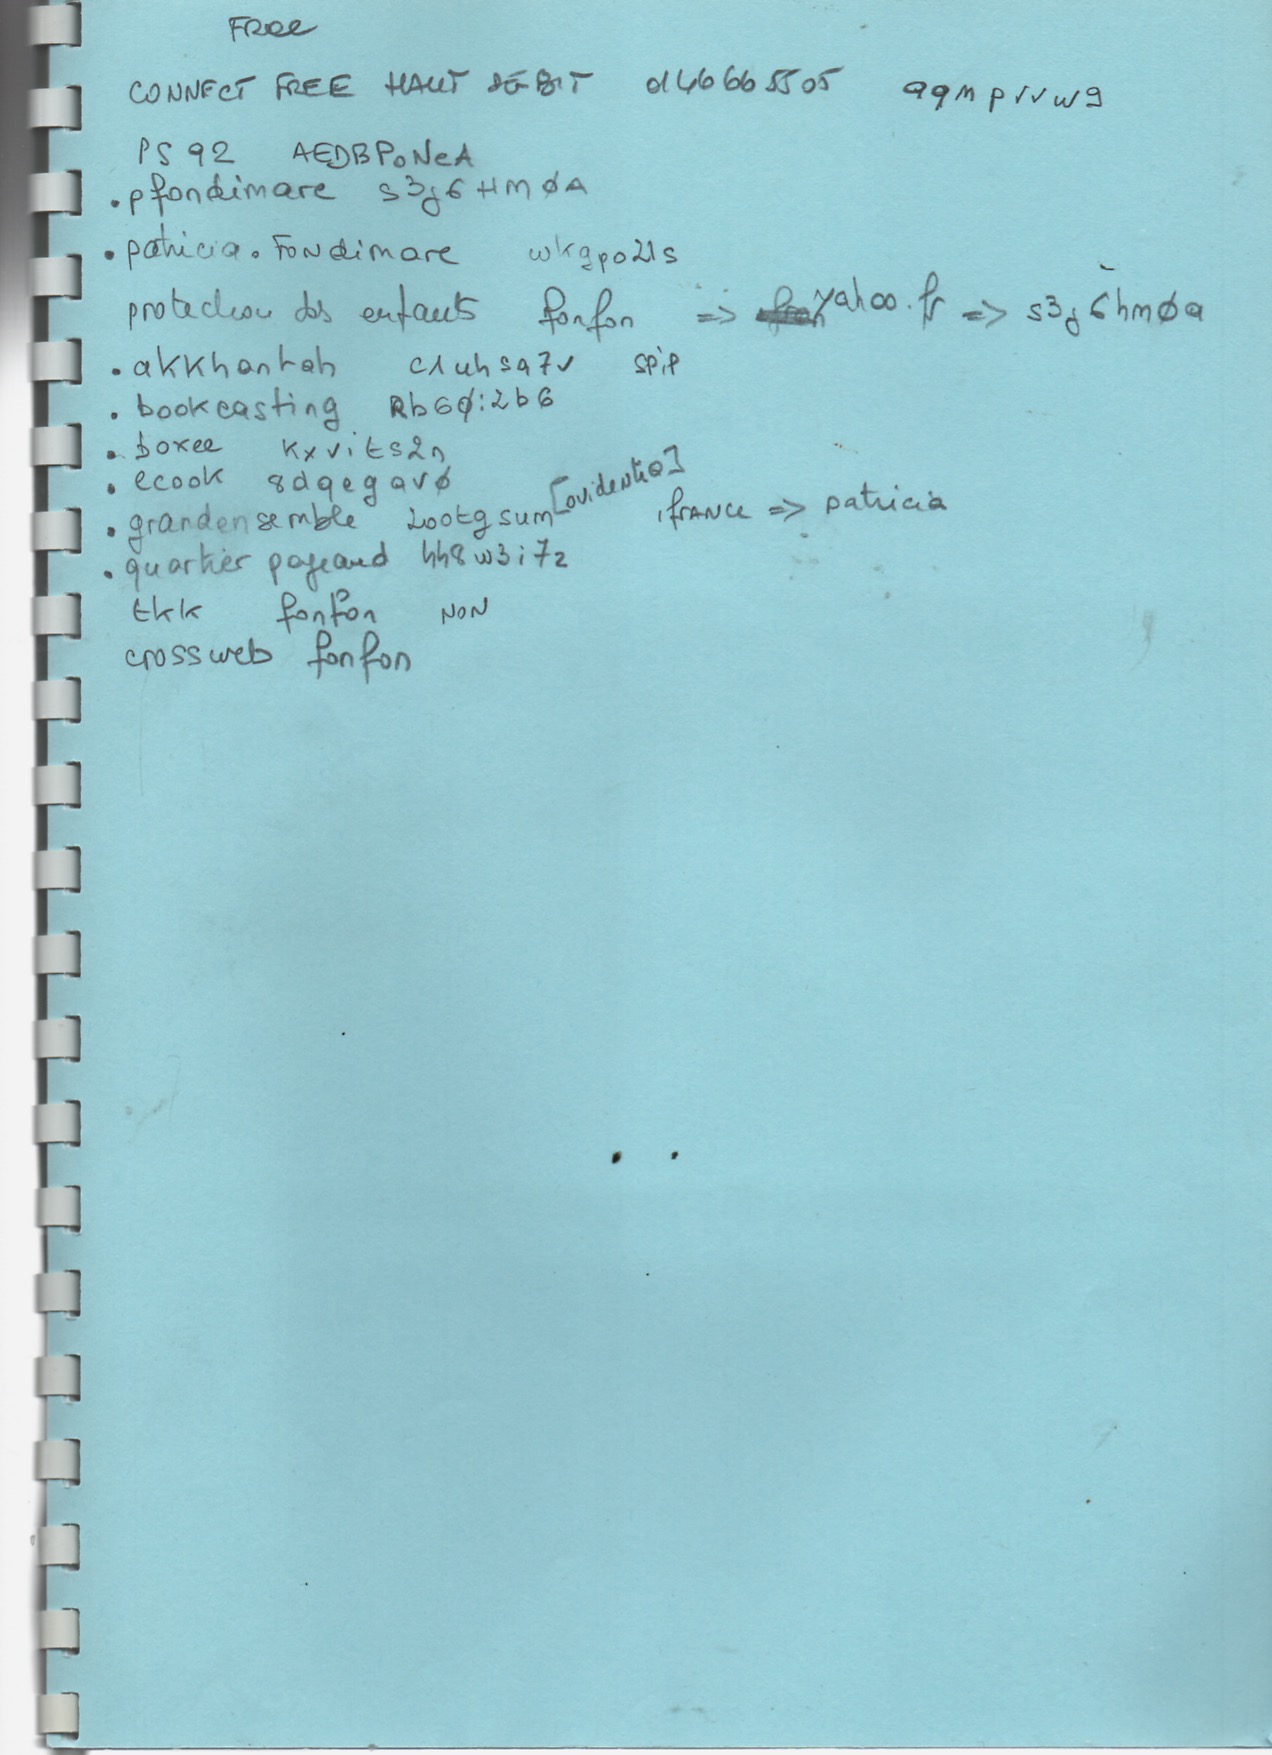 Free
CONNECT FREE HAUT DEBIT 0146665505 aqmprvw9
PS 92 AEDBPoNeA
. pfondimare s3j6HMØA
. patricia.Fondimare wkgpo21s
protection des enfants fonfon => yahoo.fr => s3j6hmøa
. akkhantah c1uhsa7v spip
. bookcasting Rb6ø:2b6
. boxee kxvits2n
. ecook 8dqegavø
. grandensemble 200tgsum [ovidentia] ifrance => patricia
. quartier pajeaud hh8w3i7z
tkk fonfon NON
crossweb fonfon